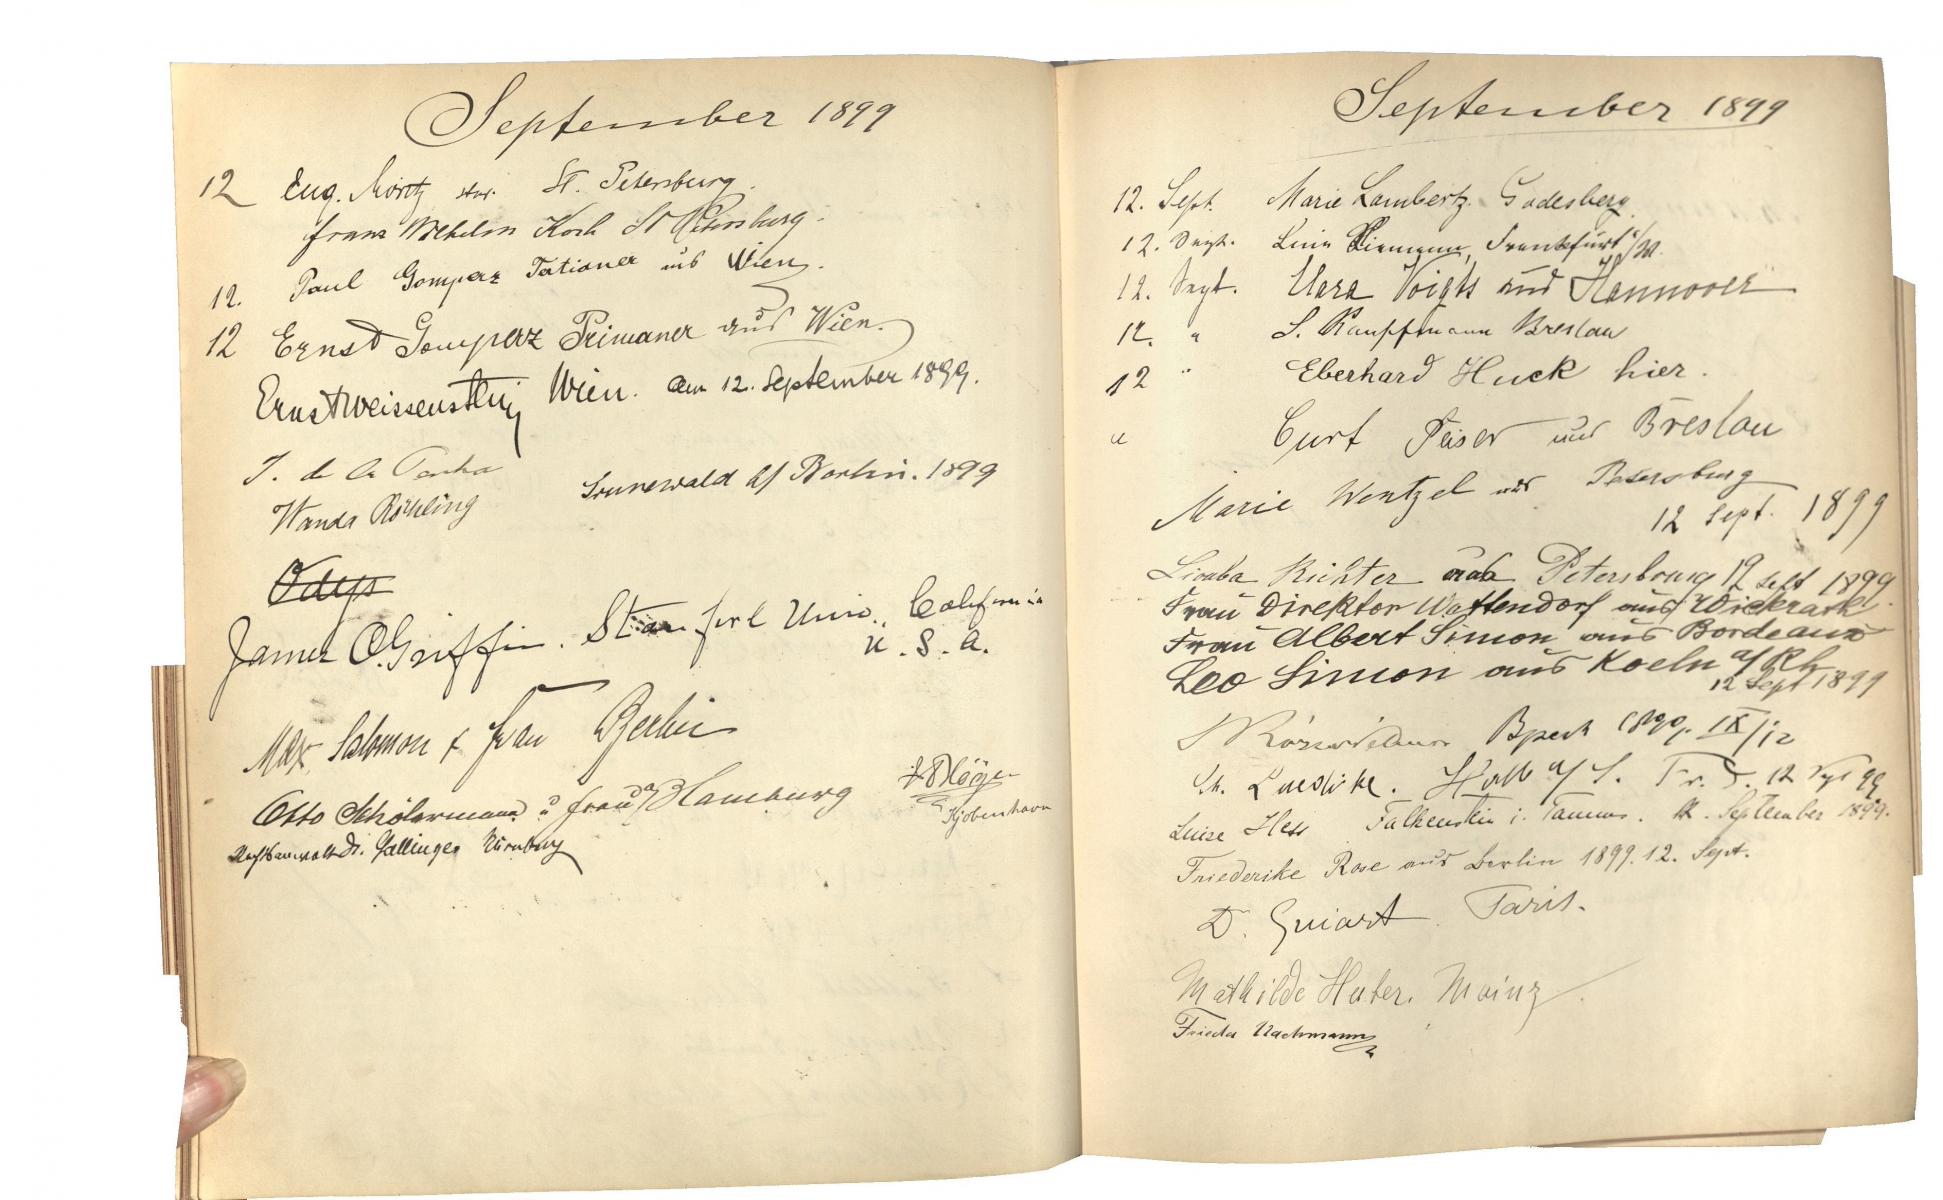 September 1899
12 Eug. Moritz St. Petersburg.
Franz Wilhelm Koch St Petersburg.
12. Paul Gomperz aus Wien.
12 Ernst Gomperz Primaner aus Wien.
Ernst Weissenstein Wien. am 12. September 1899.
J. de la
Wanda Röchling Grunewald b/ Berlin. 1899
Odys
James O. Griffin. Stanford Univ., California
U. S. A.
Max Salomon & Frau Berlin
Kjobenhavn
Otto Schölermann u Frau Hamburg
Rechtsanwalt Dr. Gallinger Nürnberg
September 1899
12. Sept. Marie Lambertz. Godesberg.
12. Sept. Frankfurt a/M.
12. Sept. Clara Voigts aus Hannover
12. " S. Kauffmann Breslau
12 " Eberhard Huck hier.
" Curt Peiser aus Breslau
Marie Wentzel aus Petersburg
12 Sept. 1899
Liouba Richter aus Petersbourg 12 Sept 1899
Frau Direktor Wattendorf aus Wickrath.
Frau Albert Simon aus Bordeaux
Leo Simon aus Koeln a/Rh
12 Sept 1899
1899. IX/12
Halle a/S. 12 Sept 99
Luise Hess Falkenstein i. Taunus. 12. September 1899.
Friederike Rose aus Berlin 1899. 12. Sept.
D. Guiart Paris.
Mathilde Huber. Mainz.
Frieda Nachmann